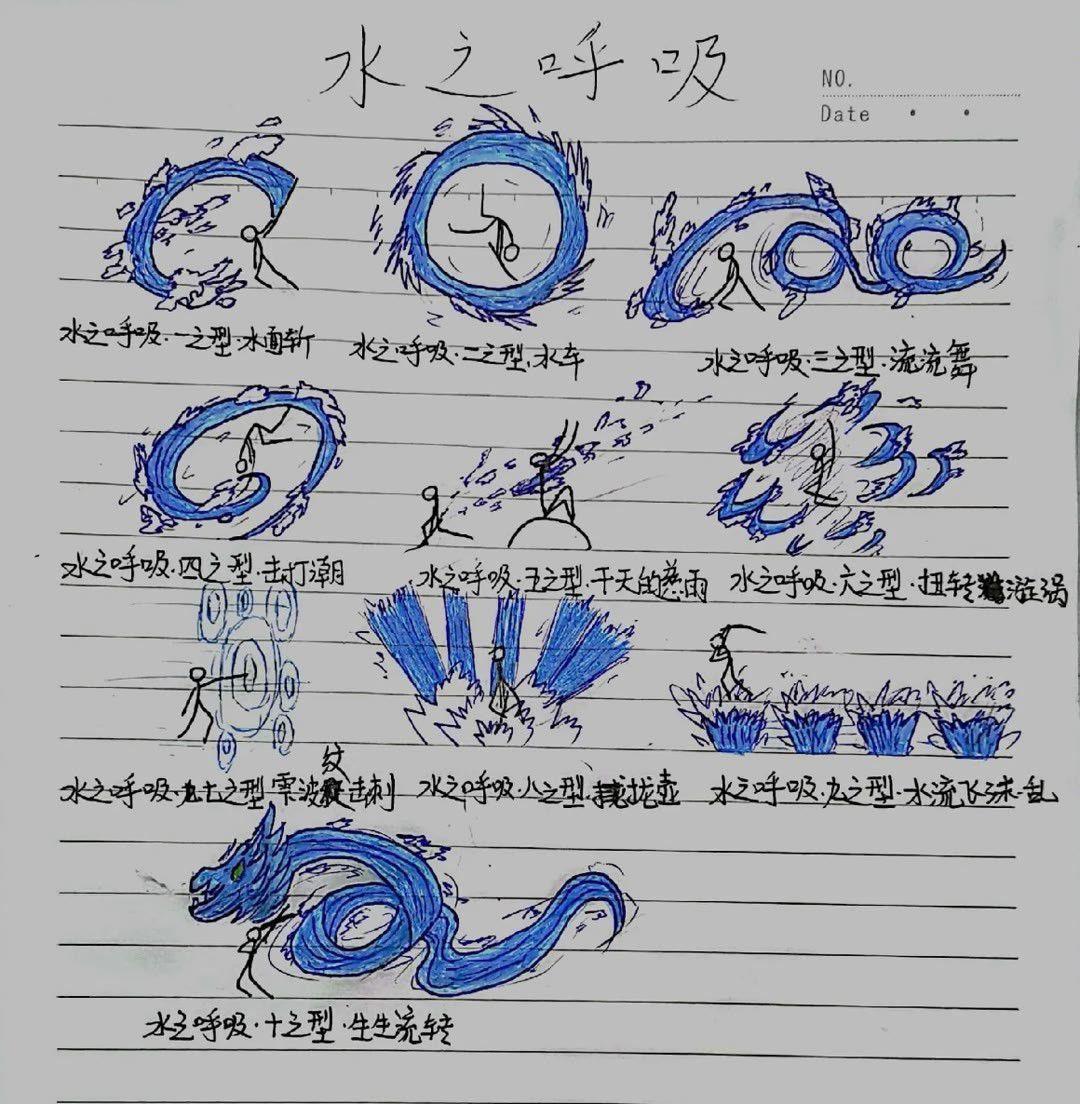 水之呼吸
NO.
Date
水之呼吸·一之型·水面斩
水之呼吸·二之型·水车
水之呼吸·三之型·流流舞
水之呼吸·四之型·击打潮
水之呼吸·五之型·干天的慈雨
水之呼吸·六之型·扭转漩涡
水之呼吸·七之型·雫波纹击刺
水之呼吸·八之型·拢壶
水之呼吸·九之型·水流飞沫·乱
水之呼吸·十之型·生生流转